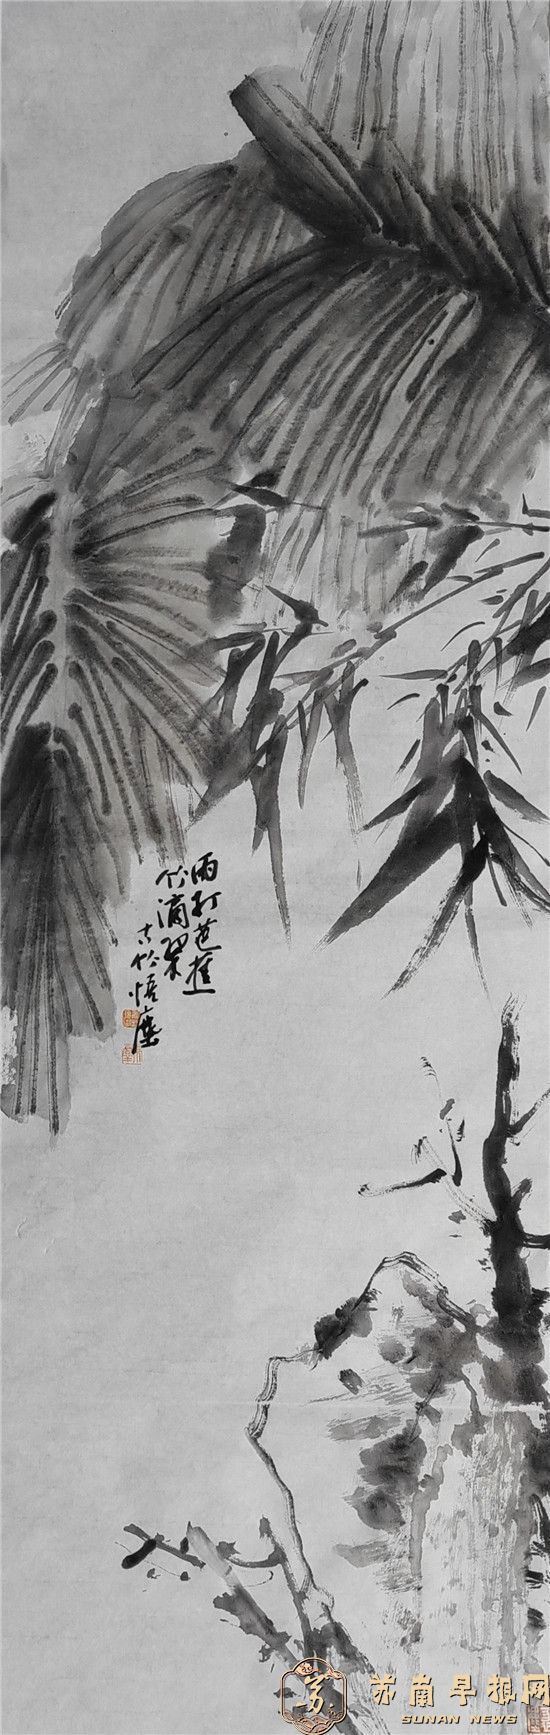 雨打芭蕉
竹滴翠
古竹悟塵
苏南早报网
SUNAN NEWS